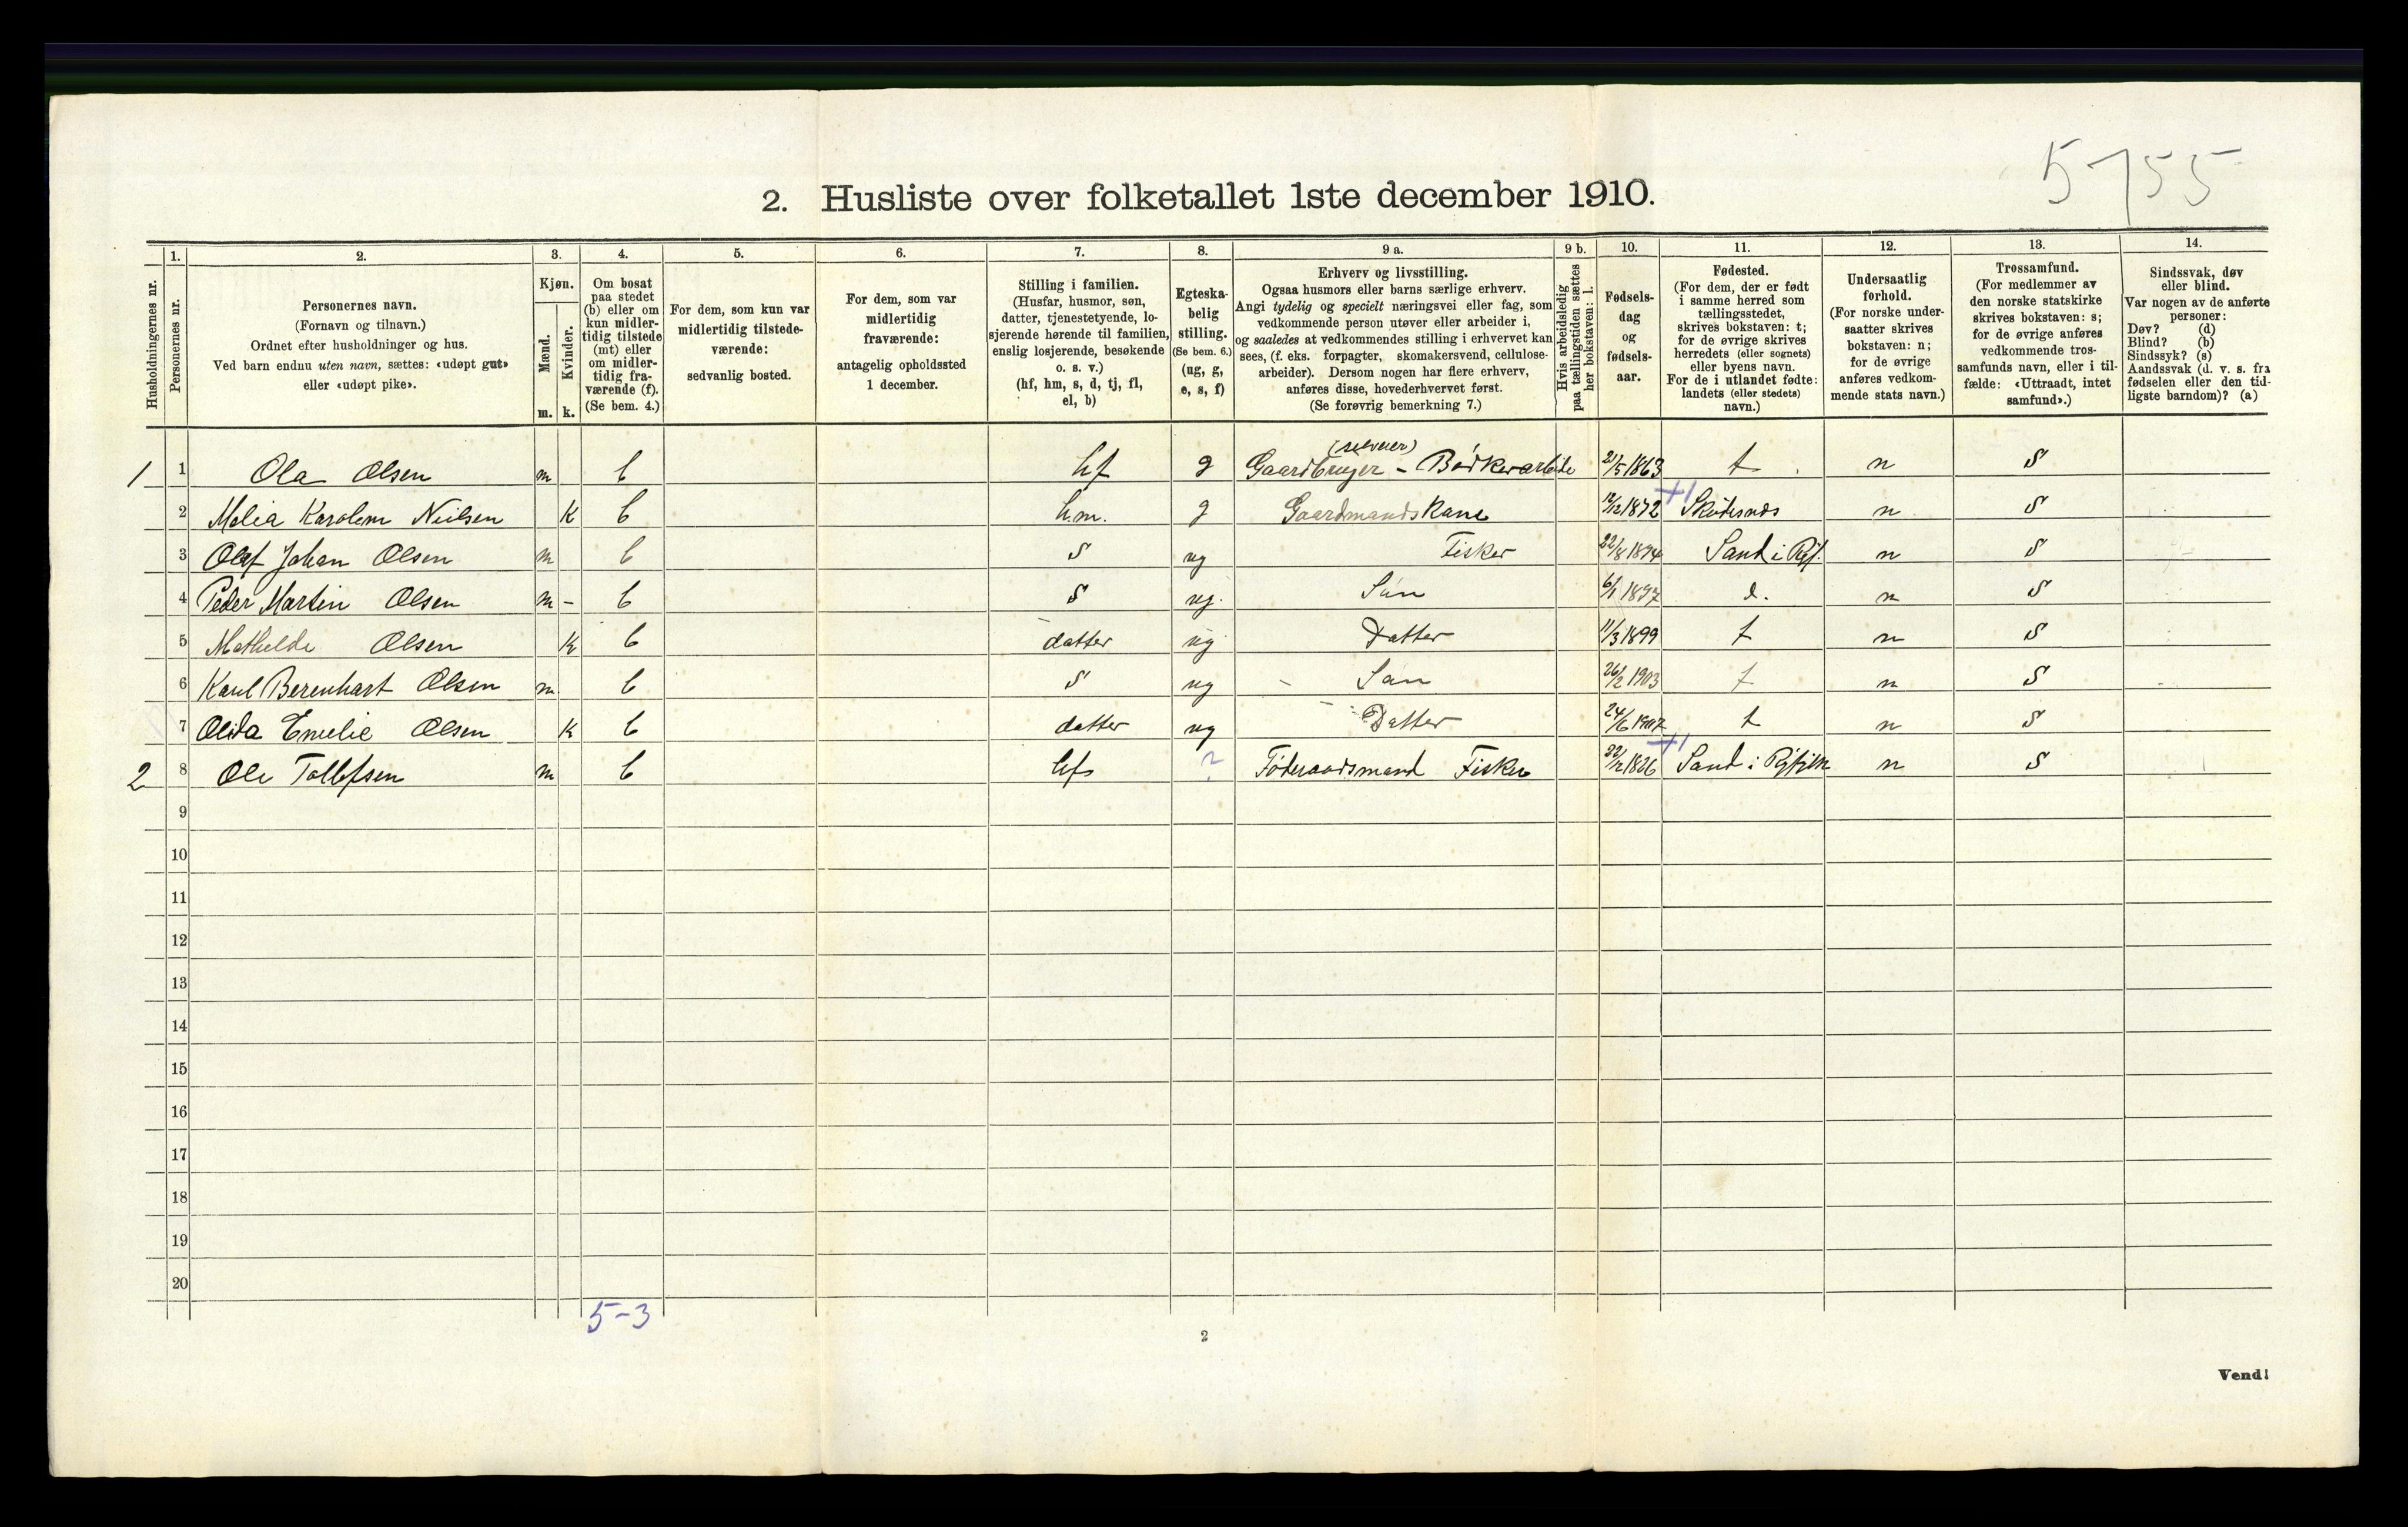 5755
2. Husliste over folketallet 1ste december 1910.
Husholdningernes nr.
1.
Personernes nr.
2.
Personernes navn.
(Fornavn og tilnavn.)
Ordnet efter husholdninger og hus.
Ved barn endnu uten navn, sættes: «udøpt gut»
eller «udøpt pike».
3.
Kjøn.
Mænd.
m.
Kvinder.
k.
4.
Om bosat
paa stedet
(b) eller om
kun midler-
tidig tilstede
(mt) eller
om midler-
tidig fra-
værende (f).
(Se bem. 4.)
5.
For dem, som kun var
midlertidig tilstede-
værende:
sedvanlig bosted.
6.
For dem, som var
midlertidig
fraværende:
antagelig opholdssted
1 december.
7.
Stilling i familien.
(Husfar, husmor, søn,
datter, tjenestetyende, lo-
sjerende hørende til familien,
enslig losjerende, besøkende
o. s. v.)
(hf, hm, s, d, tj, fl,
el, b)
8.
Egteska-
belig
stilling.
(Se bem. 6.)
(ug, g,
e, s, f)
9 a.
Erhverv og livsstilling.
Ogsaa husmors eller barns særlige erhverv.
Angi tydelig og specielt næringsvei eller fag, som
vedkommende person utøver eller arbeider i,
og saaledes at vedkommendes stilling i erhvervet kan
sees, (f. eks. forpagter, skomakersvend, cellulose-
arbeider). Dersom nogen har flere erhverv,
anføres disse, hovederhvervet først.
(Se forøvrig bemerkning 7.)
9 b.
Hvis arbeidsledig
paa tællingstiden sættes
her bokstaven: l.
10.
Fødsels-
dag
og
fødsels-
aar.
11.
Fødested.
(For dem, der er født
i samme herred som
tællingsstedet,
skrives bokstaven: t;
for de øvrige skrives
herredets (eller sognets)
eller byens navn.
For de i utlandet fødte:
landets (eller stedets)
navn.)
12.
Undersaatlig
forhold.
(For norske under-
saatter skrives
bokstaven: n;
for de øvrige
anføres vedkom-
mende stats navn.)
13.
Trossamfund.
(For medlemmer av
den norske statskirke
skrives bokstaven: s;
for de øvrige anføres
vedkommende tros-
samfunds navn, eller i til-
fælde: «Uttraadt, intet
samfund».)
14.
Sindssvak, døv
eller blind.
Var nogen av de anførte
personer:
Døv? (d)
Blind? (b)
Sindssyk? (s)
Aandssvak (d. v. s. fra
fødselen eller den tid-
ligste barndom)? (a)
(selveier)
1 1 Ola Olsen m b hf g Gaardbruger - Bødkerarbeide 21/5 1863 t n S
2 Malia Karolem Nielsen K b hm. g Gaardmandskane 12/12 1872 Skudesnæs n S
3 Olaf Johan Olsen m b S ug Fisker 22/8 1894 Sand i Ryf. n S
4 Peder Martin Olsen m - b S ug. Sún 6/1 1897 d. n S
5 Mathelde Olsen K b datter ug Datter 11/3 1899 t n S
6 Karl Berenhart Olsen m b S ug Sún 26/2 1903 t n S
7 Olida Emelie Olsen K b datter ug Datter 24/6 1907 t n S
2 8 Ole Tollefsen m b hf ? Føderaadsmand Fisker 22/2 1826 Sand i Ryfylk n S
9
10
11
12
13
14
15
16
17
18
19
20
5-3
2
Vend!